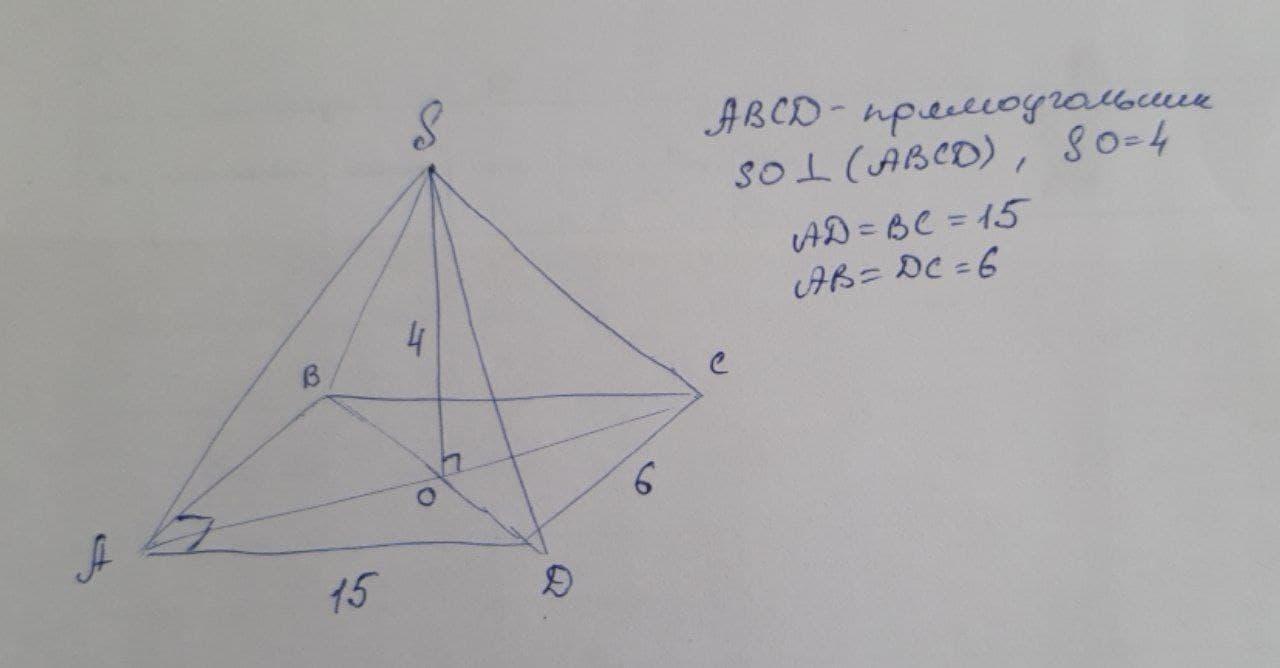 S
ABCD - прямоугольник
SO ⊥ (ABCD), SO=4
AD = BC = 15
AB = DC = 6
4
B
C
O
6
A
15
D